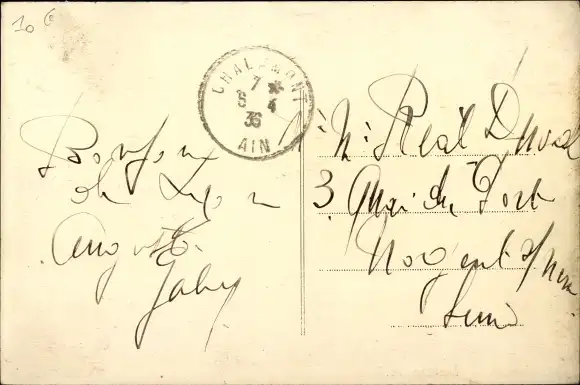 10
CHALAMONT
7 *
6 4
36
AIN
Bonjour
de Lyon
Auguste
Gaby
Réal Duval
3 Quai du Port
Nogent s/